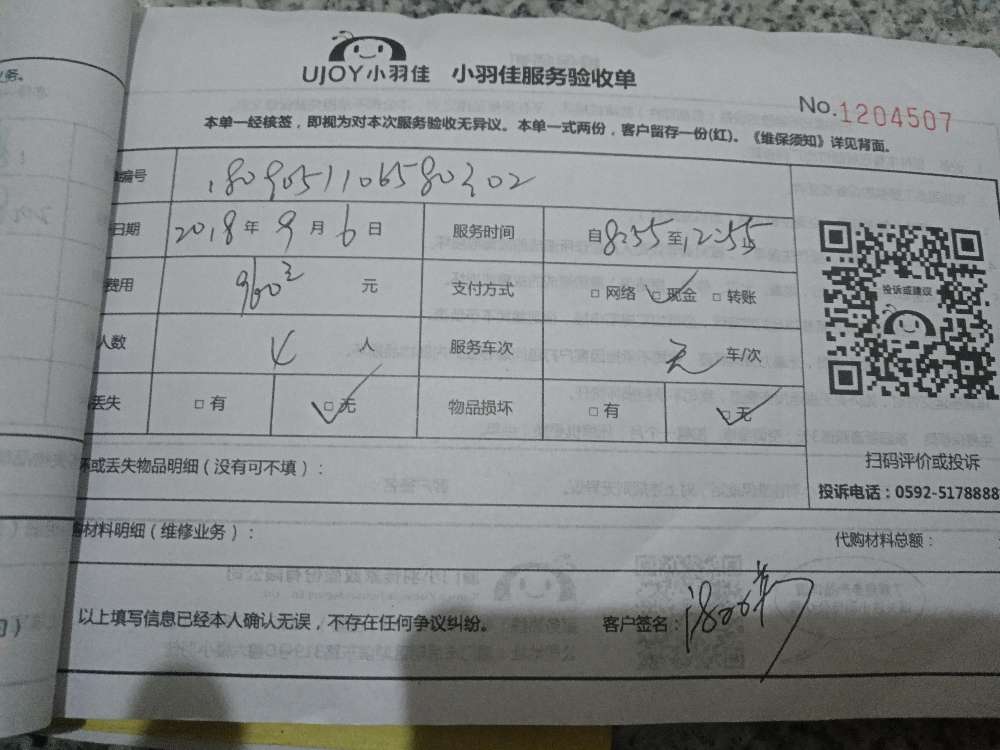 UJOY小羽佳 小羽佳服务验收单
No.1204507
本单一经核签，即视为对本次服务验收无异议。本单一式两份，客户留存一份(红)。《维保须知》详见背面。
编号 1809051106580302
日期 2018年9月6日 服务时间 自8:55至12:55止
费用 960元 支付方式 □网络 □现金 □转账
人数 4人 服务车次 无 车/次
丢失 □有 □无 物品损坏 □有 □无
投诉或建议
扫码评价或投诉
投诉电话：0592-5178888
坏或丢失物品明细（没有可不填）：
材料明细（维修业务）： 代购材料总额：
以上填写信息已经本人确认无误，不存在任何争议纠纷。 客户签名：